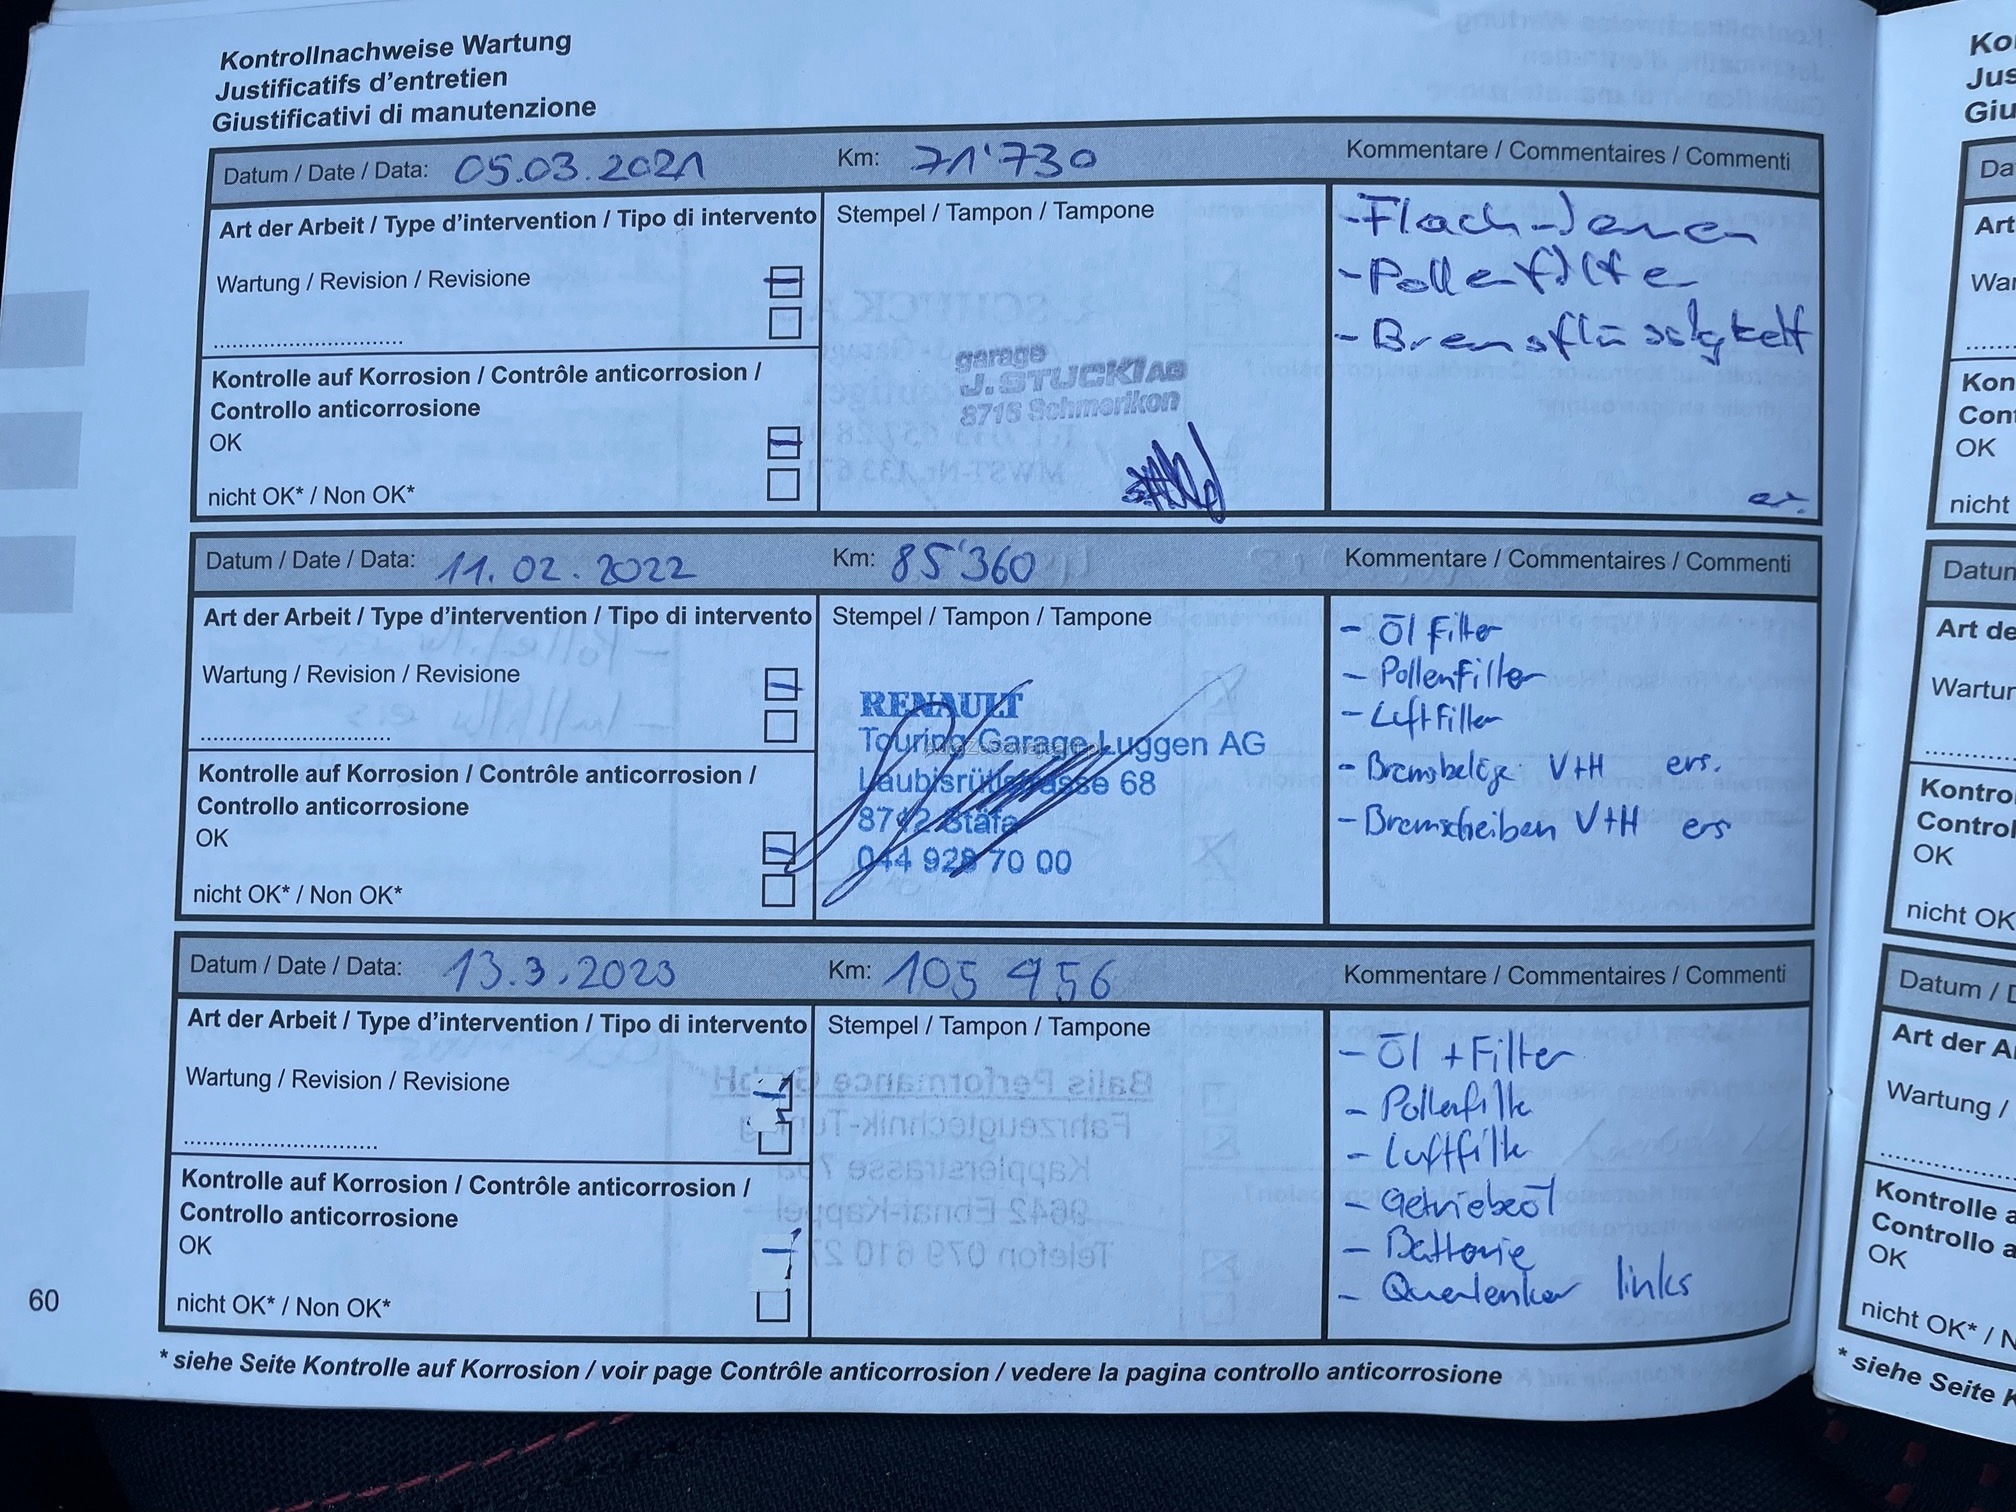 Kontrollnachweise Wartung
Justificatifs d'entretien
Giustificativi di manutenzione
Datum / Date / Data: 05.03.2021 Km: 71'730 Kommentare / Commentaires / Commenti
Art der Arbeit / Type d'intervention / Tipo di intervento Stempel / Tampon / Tampone
Wartung / Revision / Revisione
Kontrolle auf Korrosion / Contrôle anticorrosion /
Controllo anticorrosione
OK
nicht OK* / Non OK*
garage
J. STUCKI AG
8716 Schmerikon
- Pollenfilte
- Bremsflüssigkeit
Datum / Date / Data: 11.02.2022 Km: 85'360 Kommentare / Commentaires / Commenti
Art der Arbeit / Type d'intervention / Tipo di intervento Stempel / Tampon / Tampone
Wartung / Revision / Revisione
Kontrolle auf Korrosion / Contrôle anticorrosion /
Controllo anticorrosione
OK
nicht OK* / Non OK*
RENAULT
Touring Garage Luggen AG
Laubisrütistrasse 68
8712 Stäfa
044 928 70 00
- Öl Filter
- Pollenfilter
- Luftfilter
- Bremsbeläge V+H ers.
- Bremscheiben V+H ers
Datum / Date / Data: 13.3.2023 Km: 105 956 Kommentare / Commentaires / Commenti
Art der Arbeit / Type d'intervention / Tipo di intervento Stempel / Tampon / Tampone
Wartung / Revision / Revisione
Kontrolle auf Korrosion / Contrôle anticorrosion /
Controllo anticorrosione
OK
nicht OK* / Non OK*
- Öl + Filter
- Pollenfilte
- Luftfilte
- Getriebeöl
- Batterie
- Querlenker links
60
* siehe Seite Kontrolle auf Korrosion / voir page Contrôle anticorrosion / vedere la pagina controllo anticorrosione